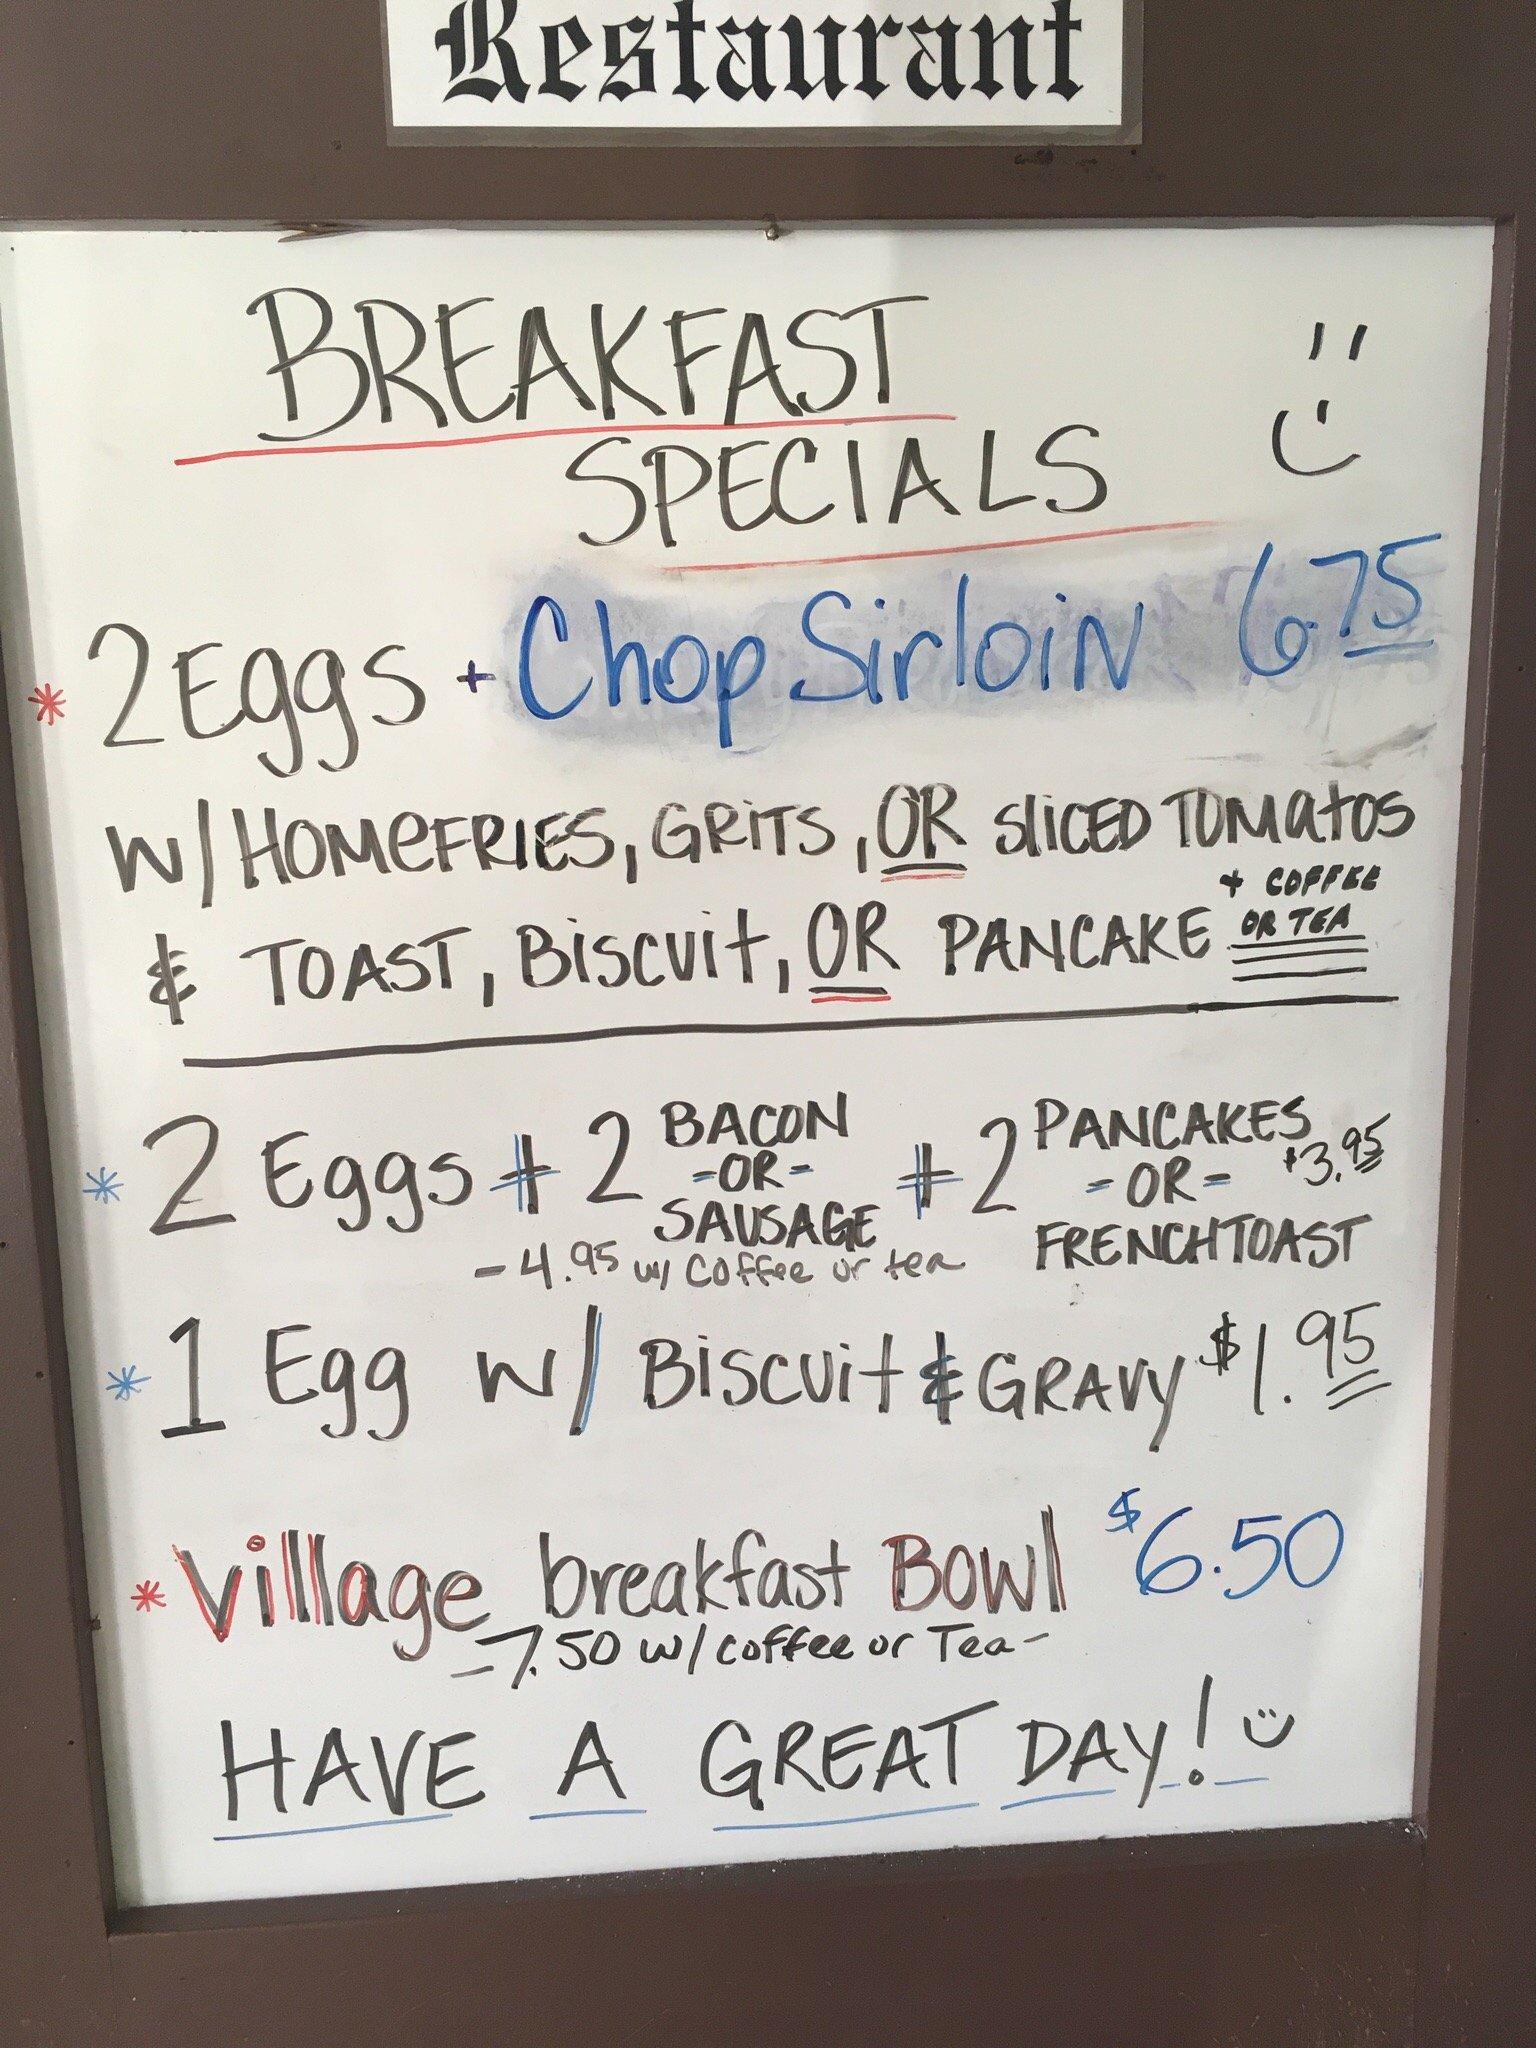 Restaurant
BREAKFAST
SPECIALS
* 2 Eggs + Chop Sirloin 6.75
W/ HOMEFRIES, GRITS, OR SLICED TOMATOS
+ COFFEE
& TOAST, BISCUIT, OR PANCAKE OR TEA
* 2 Eggs + 2 BACON -OR- SAUSAGE + 2 PANCAKES -OR- FRENCHTOAST $3.95
- 4.95 w/ Coffee or tea
* 1 Egg w/ BISCUIT & GRAVY $1.95
* Village breakfast Bowl $6.50
- 7.50 w/ coffee or Tea -
HAVE A GREAT DAY!